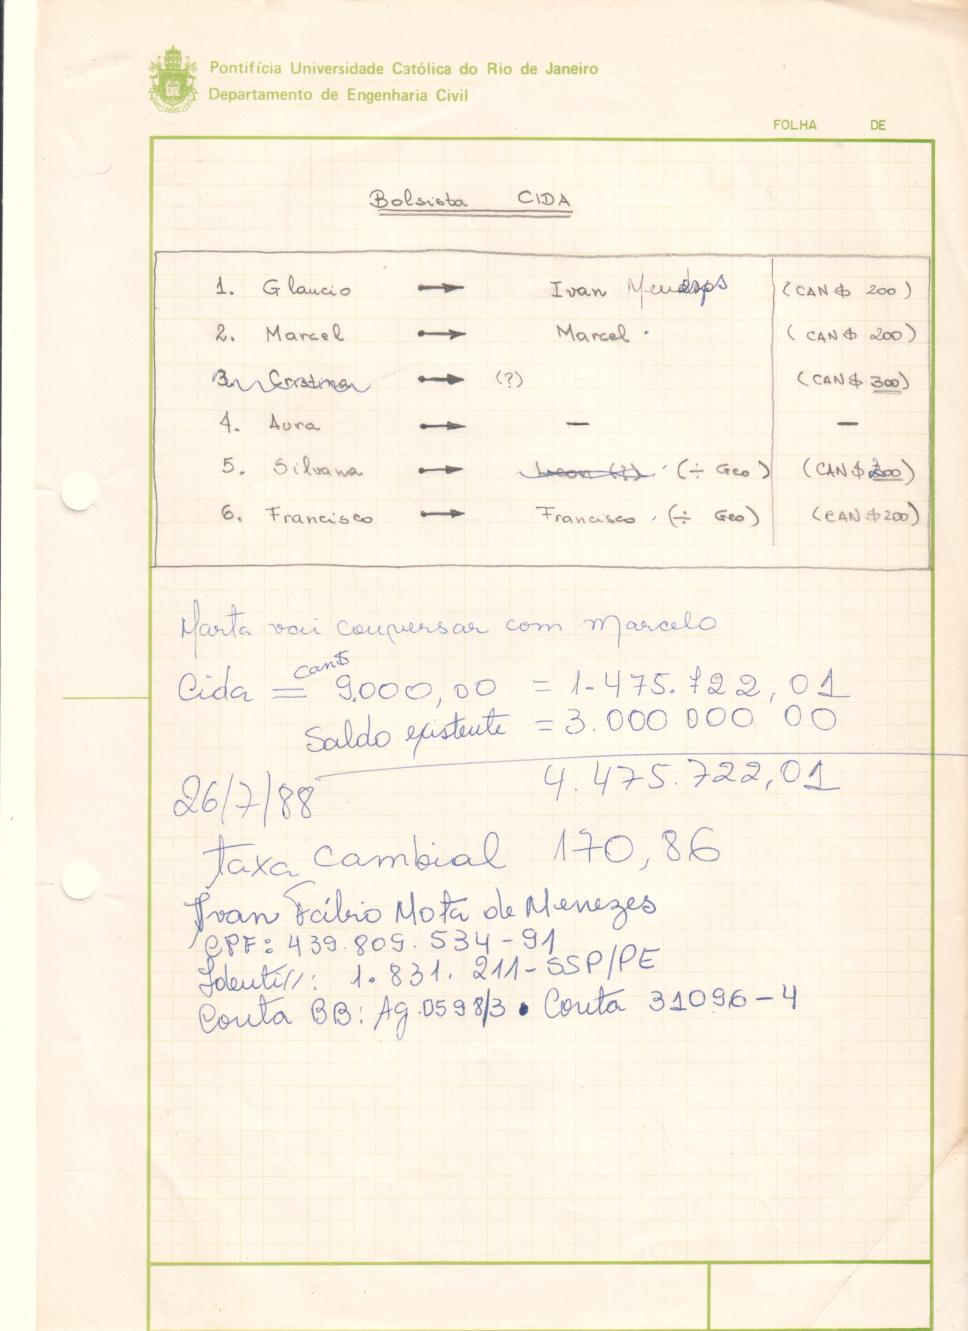 Pontifícia Universidade Católica do Rio de Janeiro
Departamento de Engenharia Civil
FOLHA DE
Bolsista CIDA
1. Glaucio Ivan (CAN $ 200)
2. Marcel Marcel (CAN $ 200)
3. Cristina (?) (CAN $ 300)
4. Aura — —
5. Silvana (÷ Geo) (CAN $
6. Francisco Francisco (÷ Geo) (CAN $ 200)
Marta vai conversar com Marcelo
can$
Cida = 9.000,00 = 1.475.722,01
Saldo existente = 3.000 000 00
4.475.722,01
26/7/88
taxa cambial 170,86
Ivan Fábio Mota de Menezes
CPF: 439.809.534-91
Identi//: 1.831.211-SSP/PE
Conta BB: Ag.0598/3 • Conta 31096-4